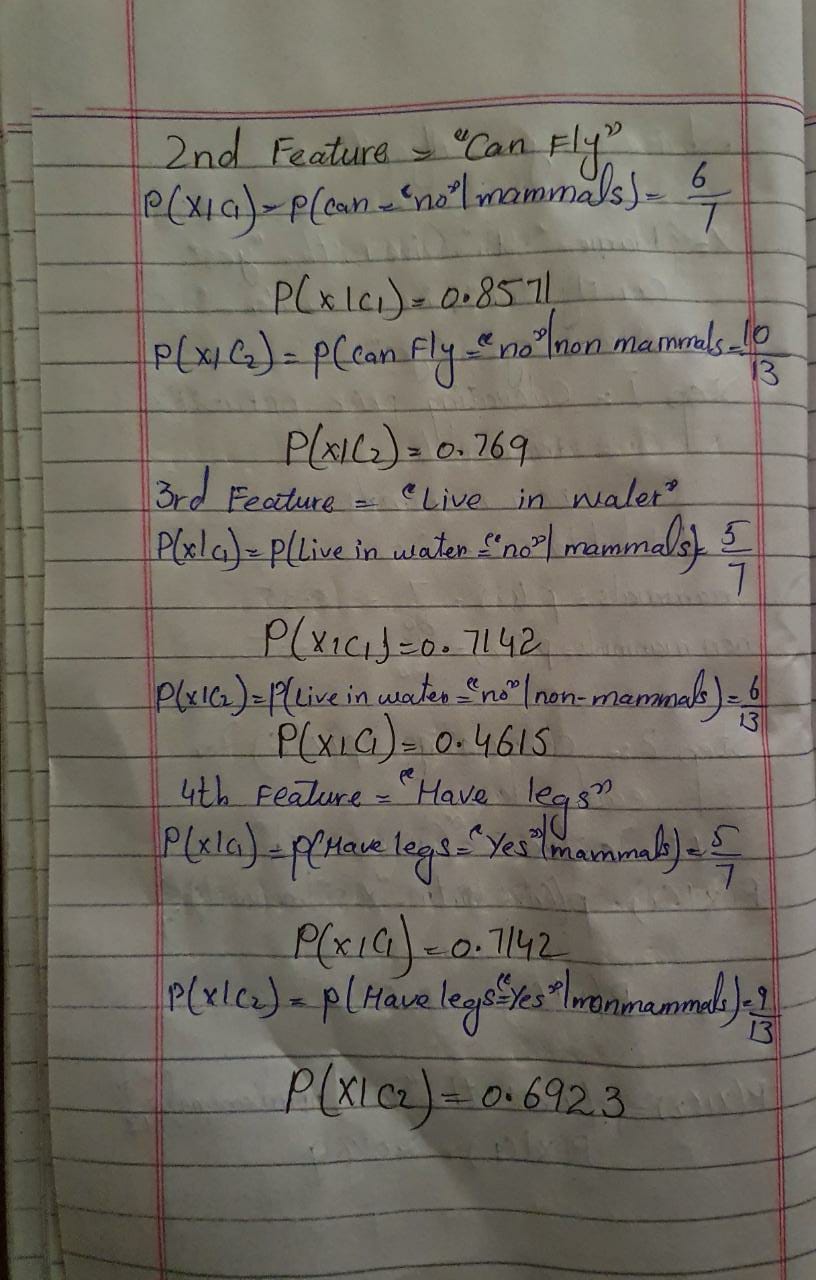 2nd Feature = "Can Fly"
P(X|C1) = P(can = "no" | mammals) = 6/7
P(X|C1) = 0.8571
P(X|C2) = P(can Fly = "no" | non mammals = 10/13
P(X|C2) = 0.769
3rd Feature = "Live in water"
P(X|C1) = P(Live in water = "no" | mammals) = 5/7
P(X|C1) = 0.7142
P(X|C2) = P(Live in water = "no" | non-mammals) = 6/13
P(X|C1) = 0.4615
4th Feature = "Have legs"
P(X|C1) = P(Have legs = "Yes" | mammals) = 5/7
P(X|C1) = 0.7142
P(X|C2) = P(Have legs = "Yes" | nonmammals) = 9/13
P(X|C2) = 0.6923